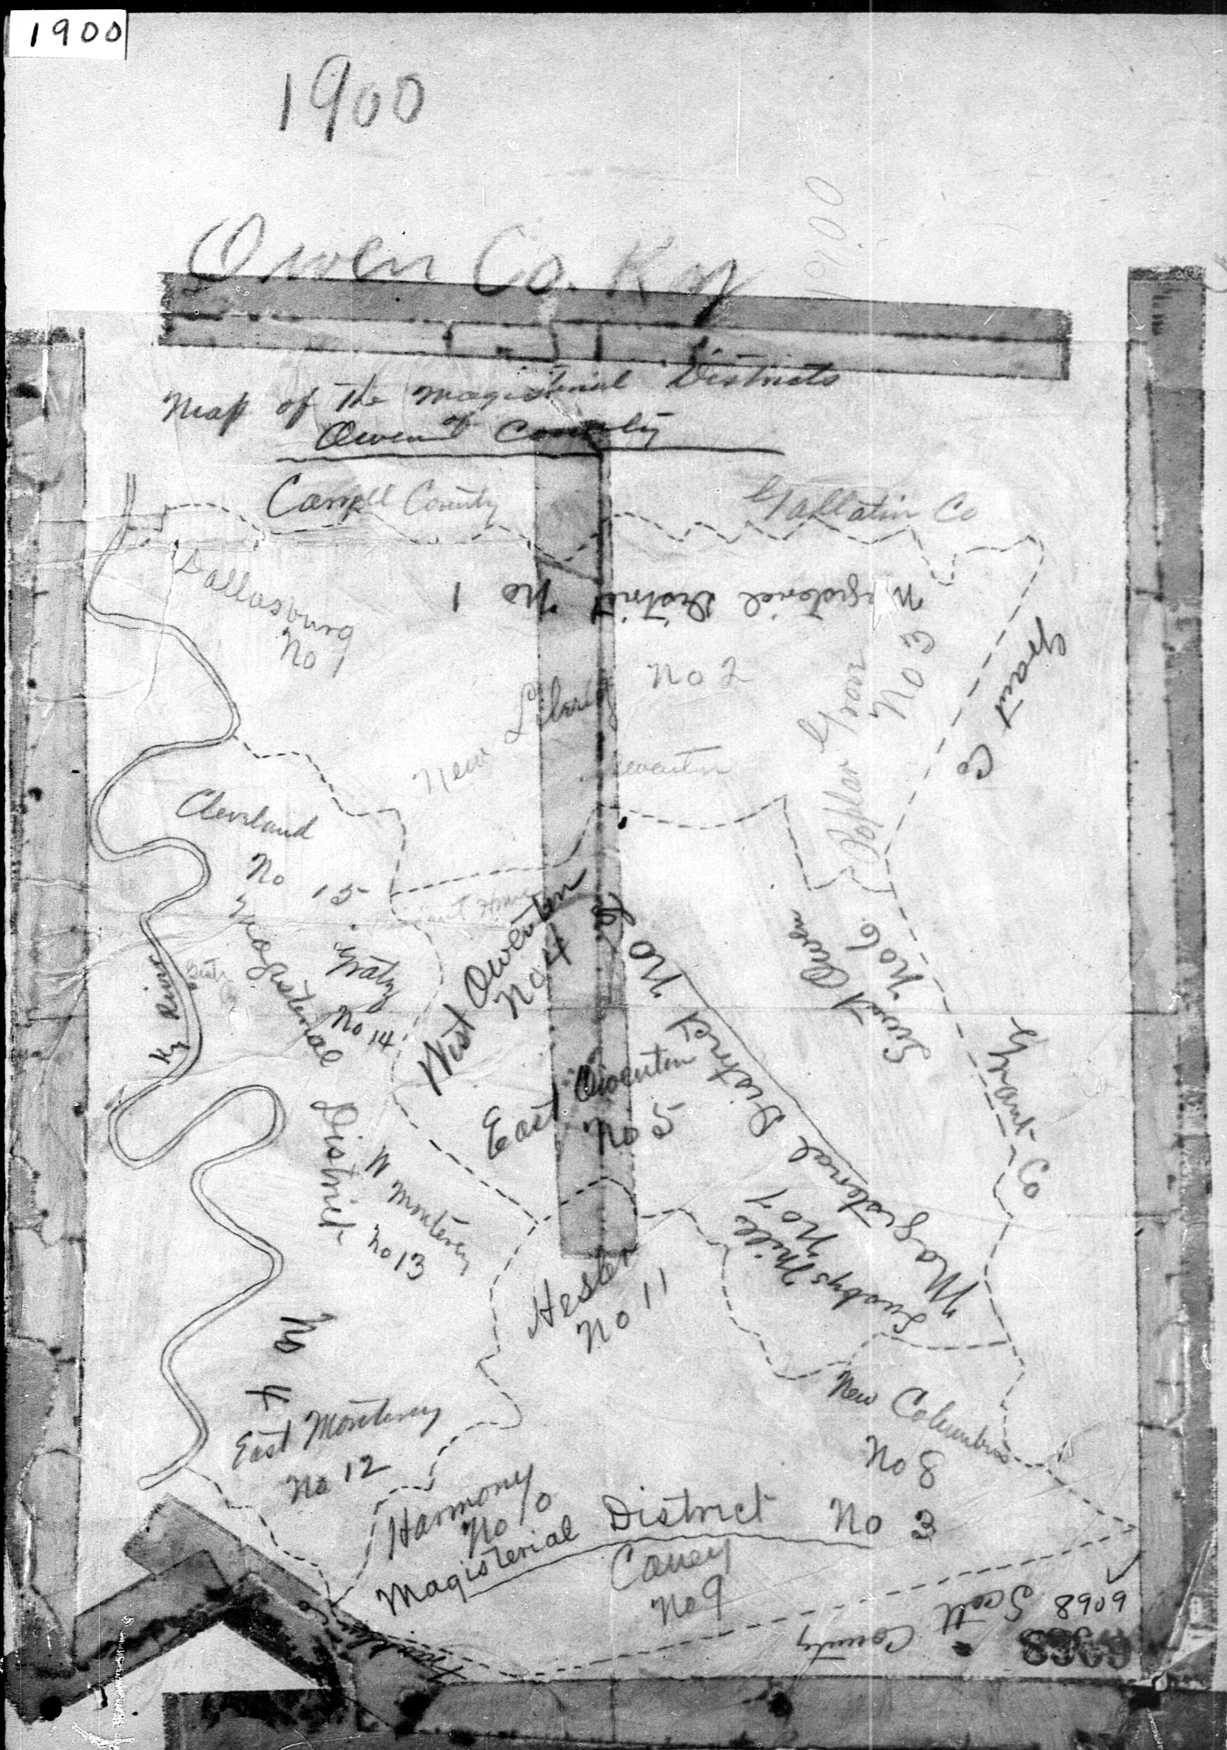 1900
1900
1900
Owen Co. Ky
Map of the Magisterial Districts
of
Owen County
Carroll County
Gallatin Co
Dallasburg
No 1
Magisterial District No 1
New Liberty No 2
Poplar Grove
No 3
Grant Co
Owenton
Cleveland
No 15
Gratz
No 14
Magisterial District
No 4
Ky River
West Owenton
No 4
East Owenton
No 5
Magisterial District No 2
Sweet Owen
No 6
Grant Co
W Monterey
No 13
Lusbys Mill
No 7
Hesler
No 11
New Columbus
No 8
East Monterey
No 12
Harmony
No 10
Magisterial District No 3
Caney
No 9
Scott County
Franklin Co
6068